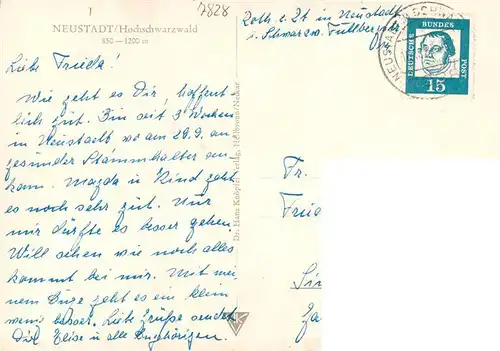 7828
NEUSTADT/Hochschwarzwald
850 – 1200 m
Liebe Frieda!
Wie geht es Dir, hoffent-
lich gut. Bin seit 3 Wochen
in Neustadt wo am 29.9. an
gesunder Stammhalter an
kam. Magda u Kind geht
es noch sehr gut. Nur
mir dürfte es besser gehen.
Will sehen wie noch alles
kommt bei mir. Mit mei
nem Auge geht es ein klein
wenig besser. Liebe Grüße sendet
Dir Elise u alle Angehörigen.
Dr. Hans Knüpfer Verlag, Heilbronn/Neckar
z. Zt in Neustadt
i. Schwarzw.
DEUTSCHE BUNDES POST
15
Fr.